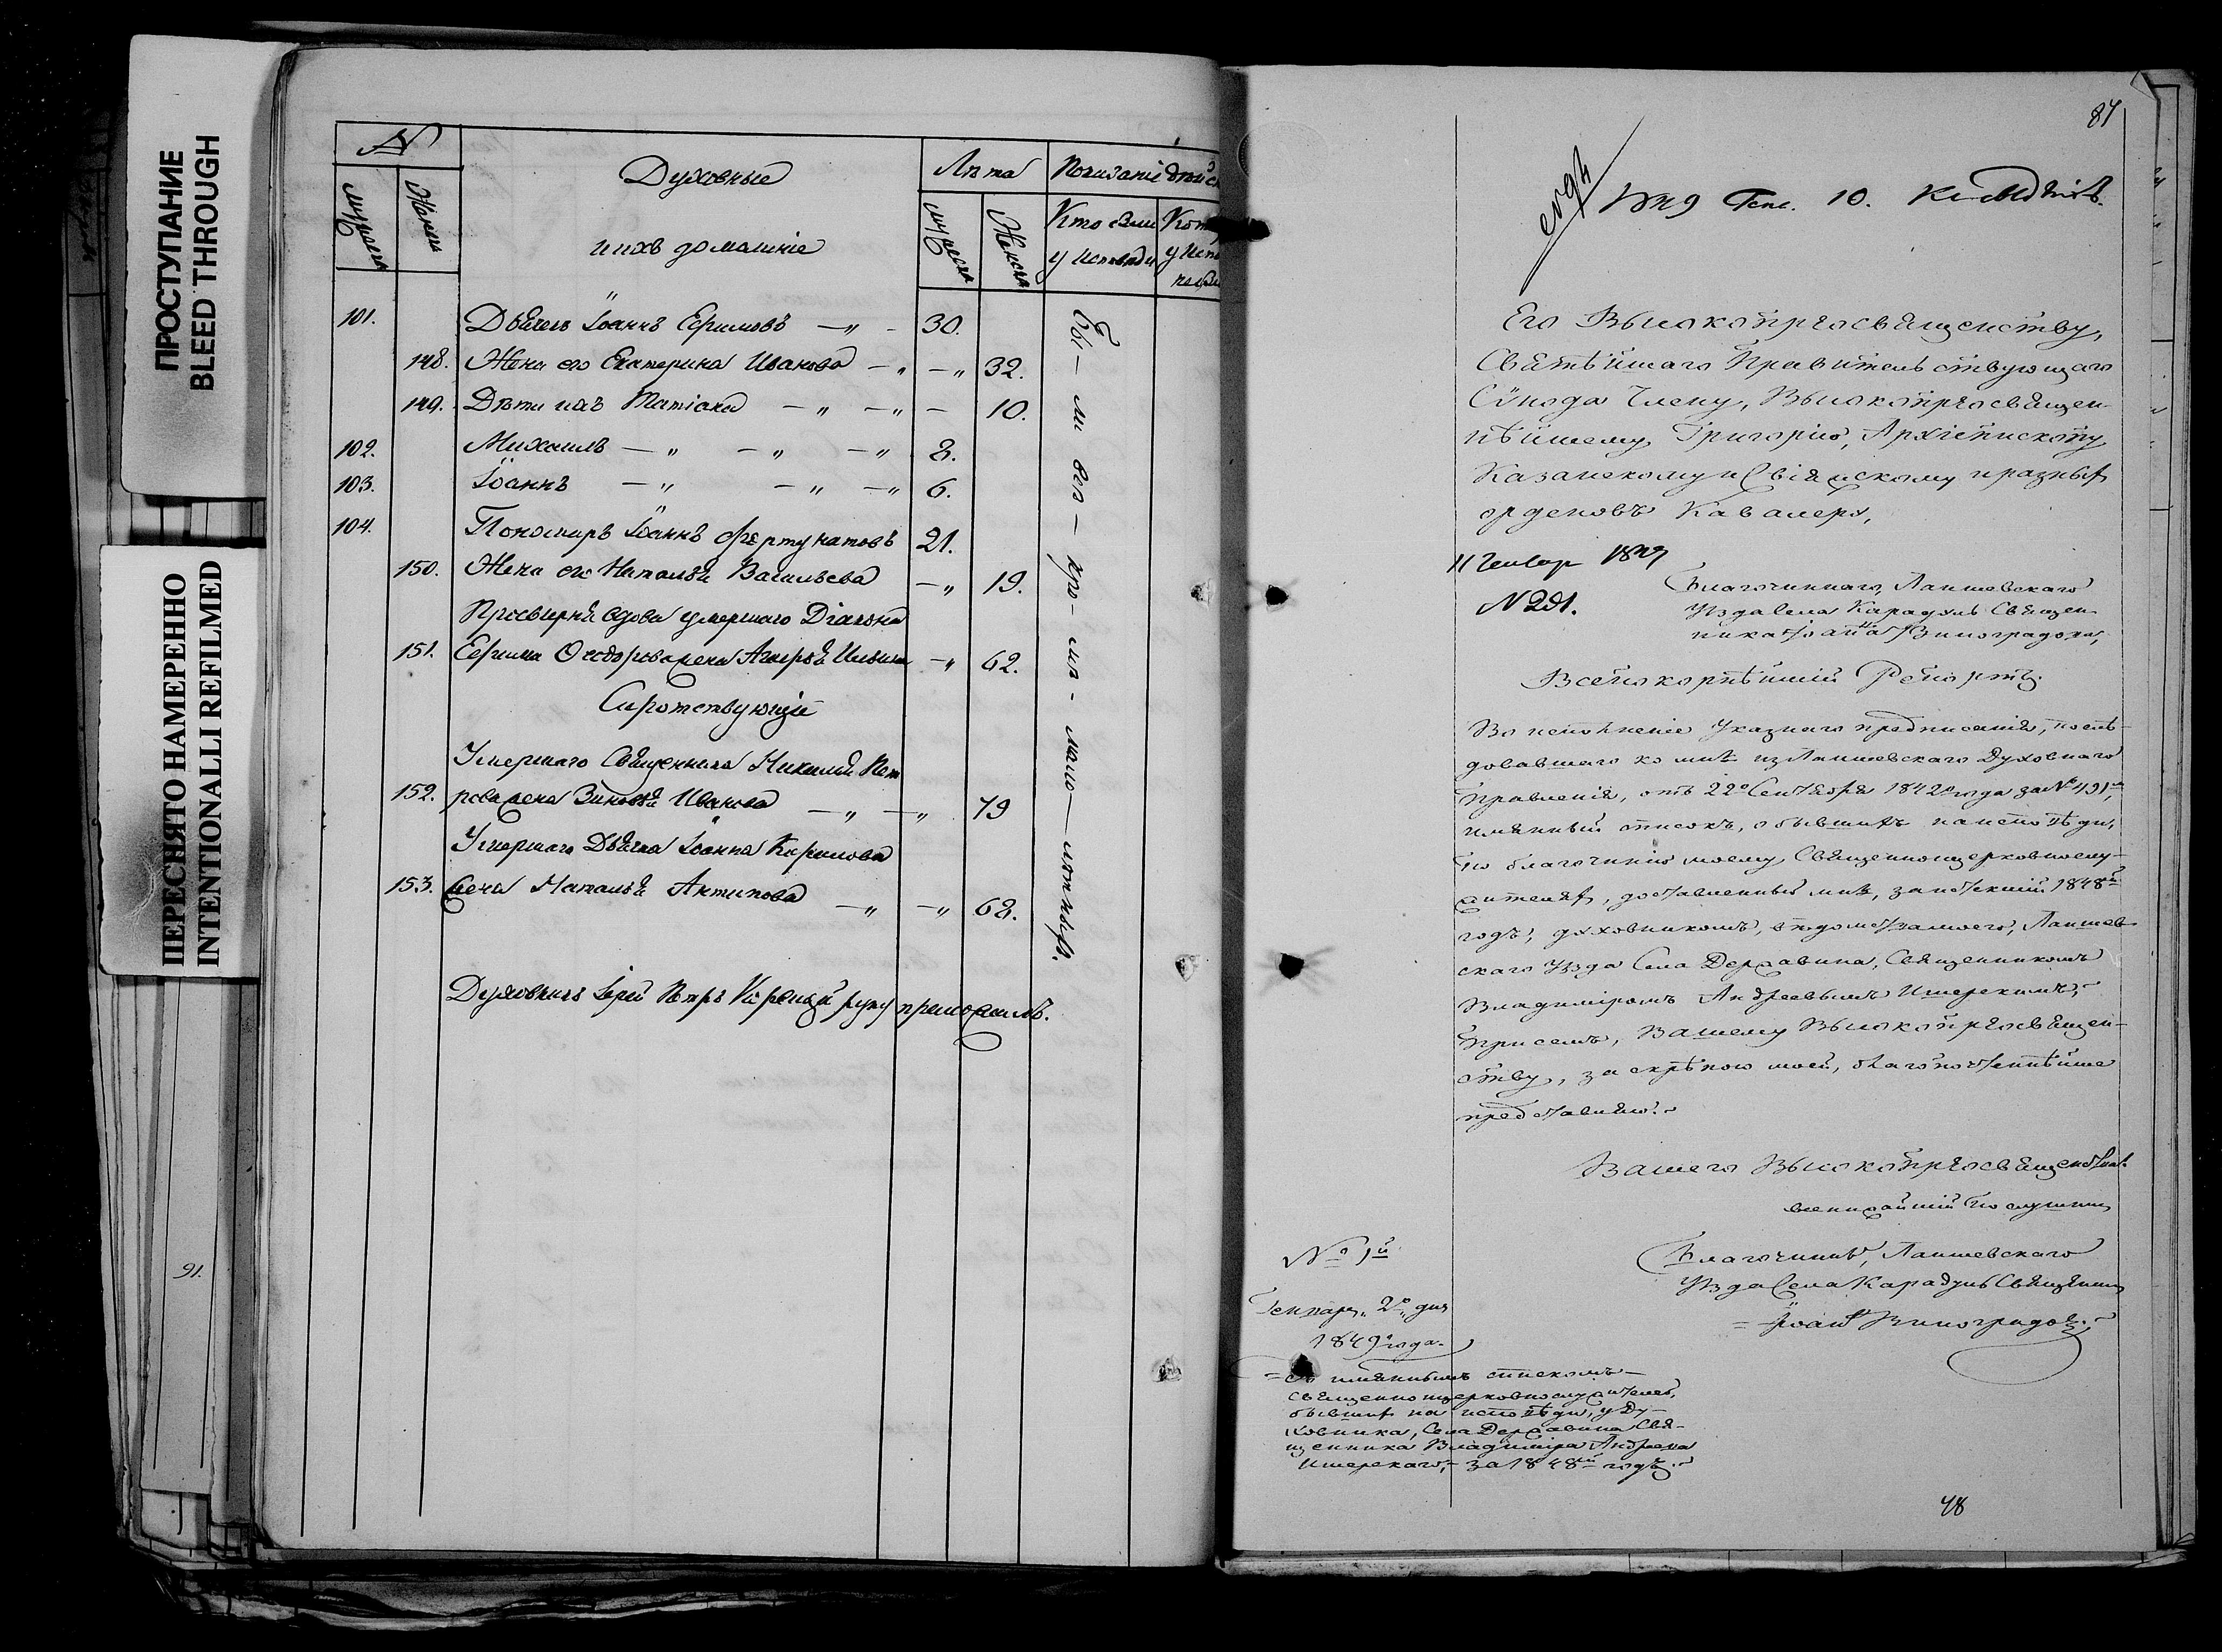 ПРОСТУПАНИЕ
BLEED THROUGH
ПЕРЕСНЯТО НАМЕРЕННО
INTENTIONALLI REFILMED
91.
№
Мужеска
Женска
Духовные
и ихъ домашніе
Лѣта
мужеска
Женска
Показаніе дѣйс
Кто были
у Исповѣди
101. Дьячекъ Іоаннъ Ефимовъ — „ - 30.
148. Жена его Екатерина Иванова — „ — „ 32.
149. Дѣти ихъ Татіана — „ — „ — 10.
102. Михаилъ — „ — „ — „ 8.
103. Іоаннъ — „ — „ — „ 6.
104. Пономарь Іоаннъ Фортунатовъ 21.
150. Жена его Наталья Васильева — „ 19.
Просвирня вдова умершаго Діакона
151. Ефима Ѳеодорова жена Ильина — „ 62.
Сиротствующіе
Умершаго Священника Николая Пет
152. рова жена Зиновія Иванова — „ — „ 79
Умершаго Дьячка Іоанна Кирилова
153. жена Наталья Антипова — „ — „ 68.
Бы — ли всѣ — кро- мѣ - мало — лѣтныхъ.
Духовникъ Іерей Петръ руку приложилъ.
87
1849 Генв. 10.
Его Высокопреосвященству,
Святѣйшаго Правительствующаго
Сѵнода Члену, Высокопреосвящен-
нѣйшему Григорію, Архіепископу
Казанскому и Свіяжскому и разныхъ
орденовъ Кавалеру,
11 Генвар 1849
№ 201.
Благочиннаго, Лаишевскаго
Уѣзда Села Карадулъ Священ-
ника Іоанна Виноградова,
Всепокорнѣйшій Репортъ.
Во исполненіе Указнаго предписанія, послѣ-
довавшаго ко мнѣ изъ Лаишевскаго Духовнаго
Правленія, отъ 22го Сентября 1842го года за № 491мъ,
имянный списокъ, о бывшихъ на исповѣди,
по благочинію моему, Священноцерковнослу-
жителяхъ, доставленный мнѣ, за истекшій 1848й
годъ, духовникомъ, вѣдомства моего, Лаишев-
скаго Уѣзда Села Державина, Священникомъ
Владиміромъ Андреевымъ Ишерскимъ,
при семъ, Вашему Высокопреосвящен-
ству, за скрѣпою моей, благопочтеннѣйше
представляю.
Вашего Высокопреосвященства
нижайшій послушникъ
Благочинный, Лаишевскаго
Уѣзда Села Карадулъ Священникъ
Іоаннъ Виноградовъ.
№ 1й
Генваря 2го дня
1849го года.
съ имяннымъ спискомъ
священноцерковнослужителей,
бывшихъ на исповѣди, у Ду-
ховника, Села Державина Свя-
щенника Владиміра Андреева
Ишерскаго, за 1848й годъ.
48